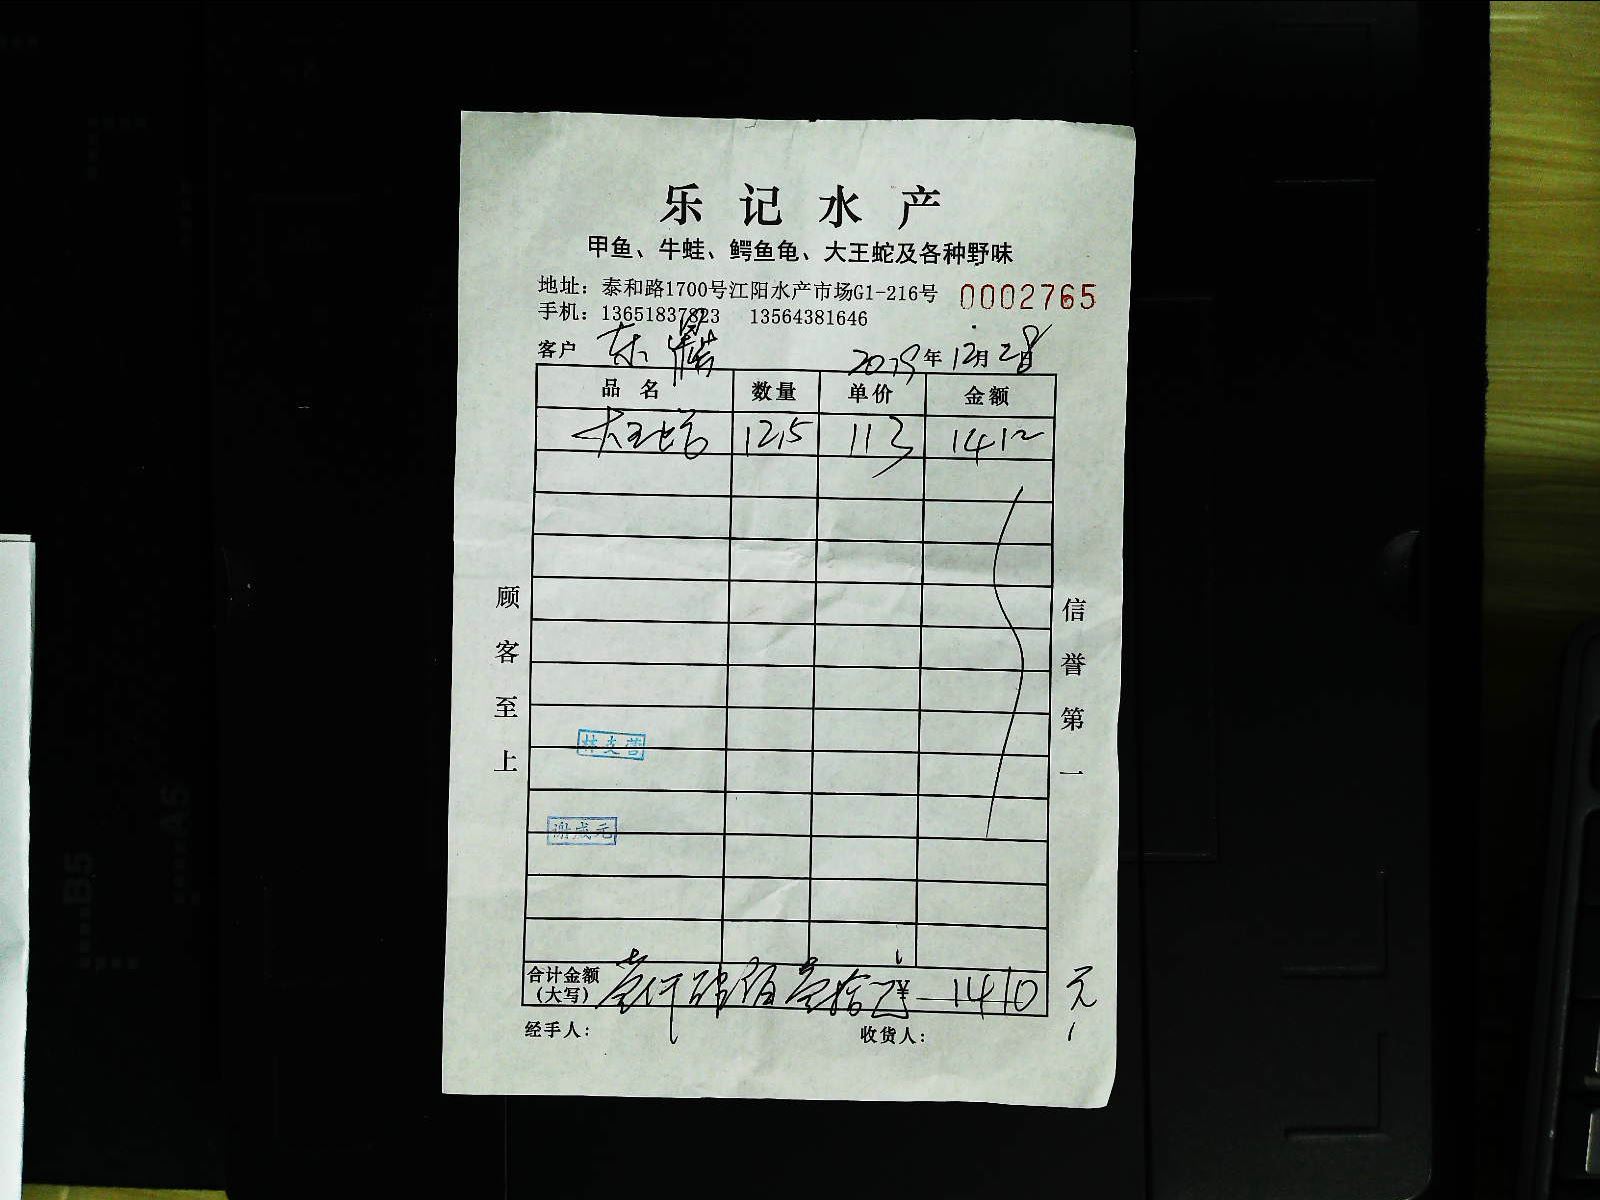 乐记水产
甲鱼、牛蛙、鳄鱼龟、大王蛇及各种野味
地址：泰和路1700号江阳水产市场G1-216号 0002765
手机：13651837823 13564381646
客户 年12月28日
品名 数量 单价 金额
大王蛇 12.5 113 1412
顾客至上
信誉第一
谢成元
合计金额(大写) 壹仟肆佰壹拾 ¥ 1410 元
经手人： 收货人：
B5
A5